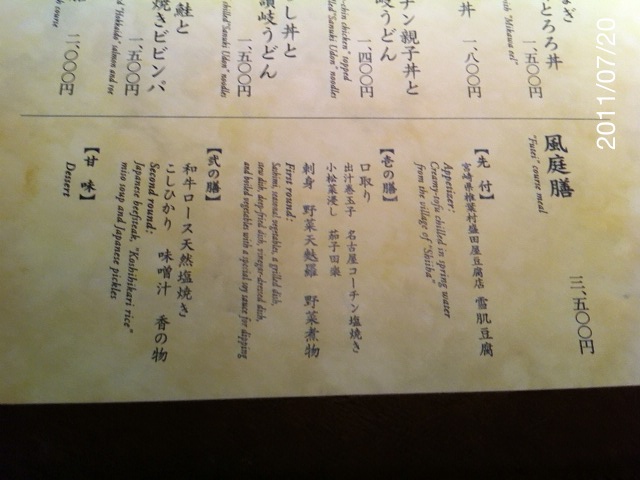 とろろ丼
一、五〇〇円
丼
一、八〇〇円
チン親子丼と
うどん
-chin chicken" topped
"Sanuki Udon" noodles
一、四〇〇円
し丼と
讃岐うどん
chilled "Sanuki Udon" noodles
一、五〇〇円
鮭と
焼きビビンバ
"Hokkaido" salmon and roe
一、五〇〇円
風庭膳
"Futei" course meal
三、五〇〇円
【先付】
宮崎県椎葉村盛田屋豆腐店 雪肌豆腐
Appetizer:
Creamy-tofu chilled in spring water
from the village of "Shiiba"
【壱の膳】
口取り
出汁巻玉子 名古屋コーチン塩焼き
小松菜浸し 茄子田楽
刺身 野菜天麩羅 野菜煮物
First round:
Sashimi, seasonal vegetables, a grilled dish,
stew dish, deep-fried dish, vinegar-dressed dish,
and boiled vegetables with a special soy sauce for dipping
【弐の膳】
和牛ロース天然塩焼き
こしひかり 味噌汁 香の物
Second round:
Japanese beefsteak, "Koshihikari rice"
miso soup and Japanese pickles
【甘味】
Dessert
2011/07/20